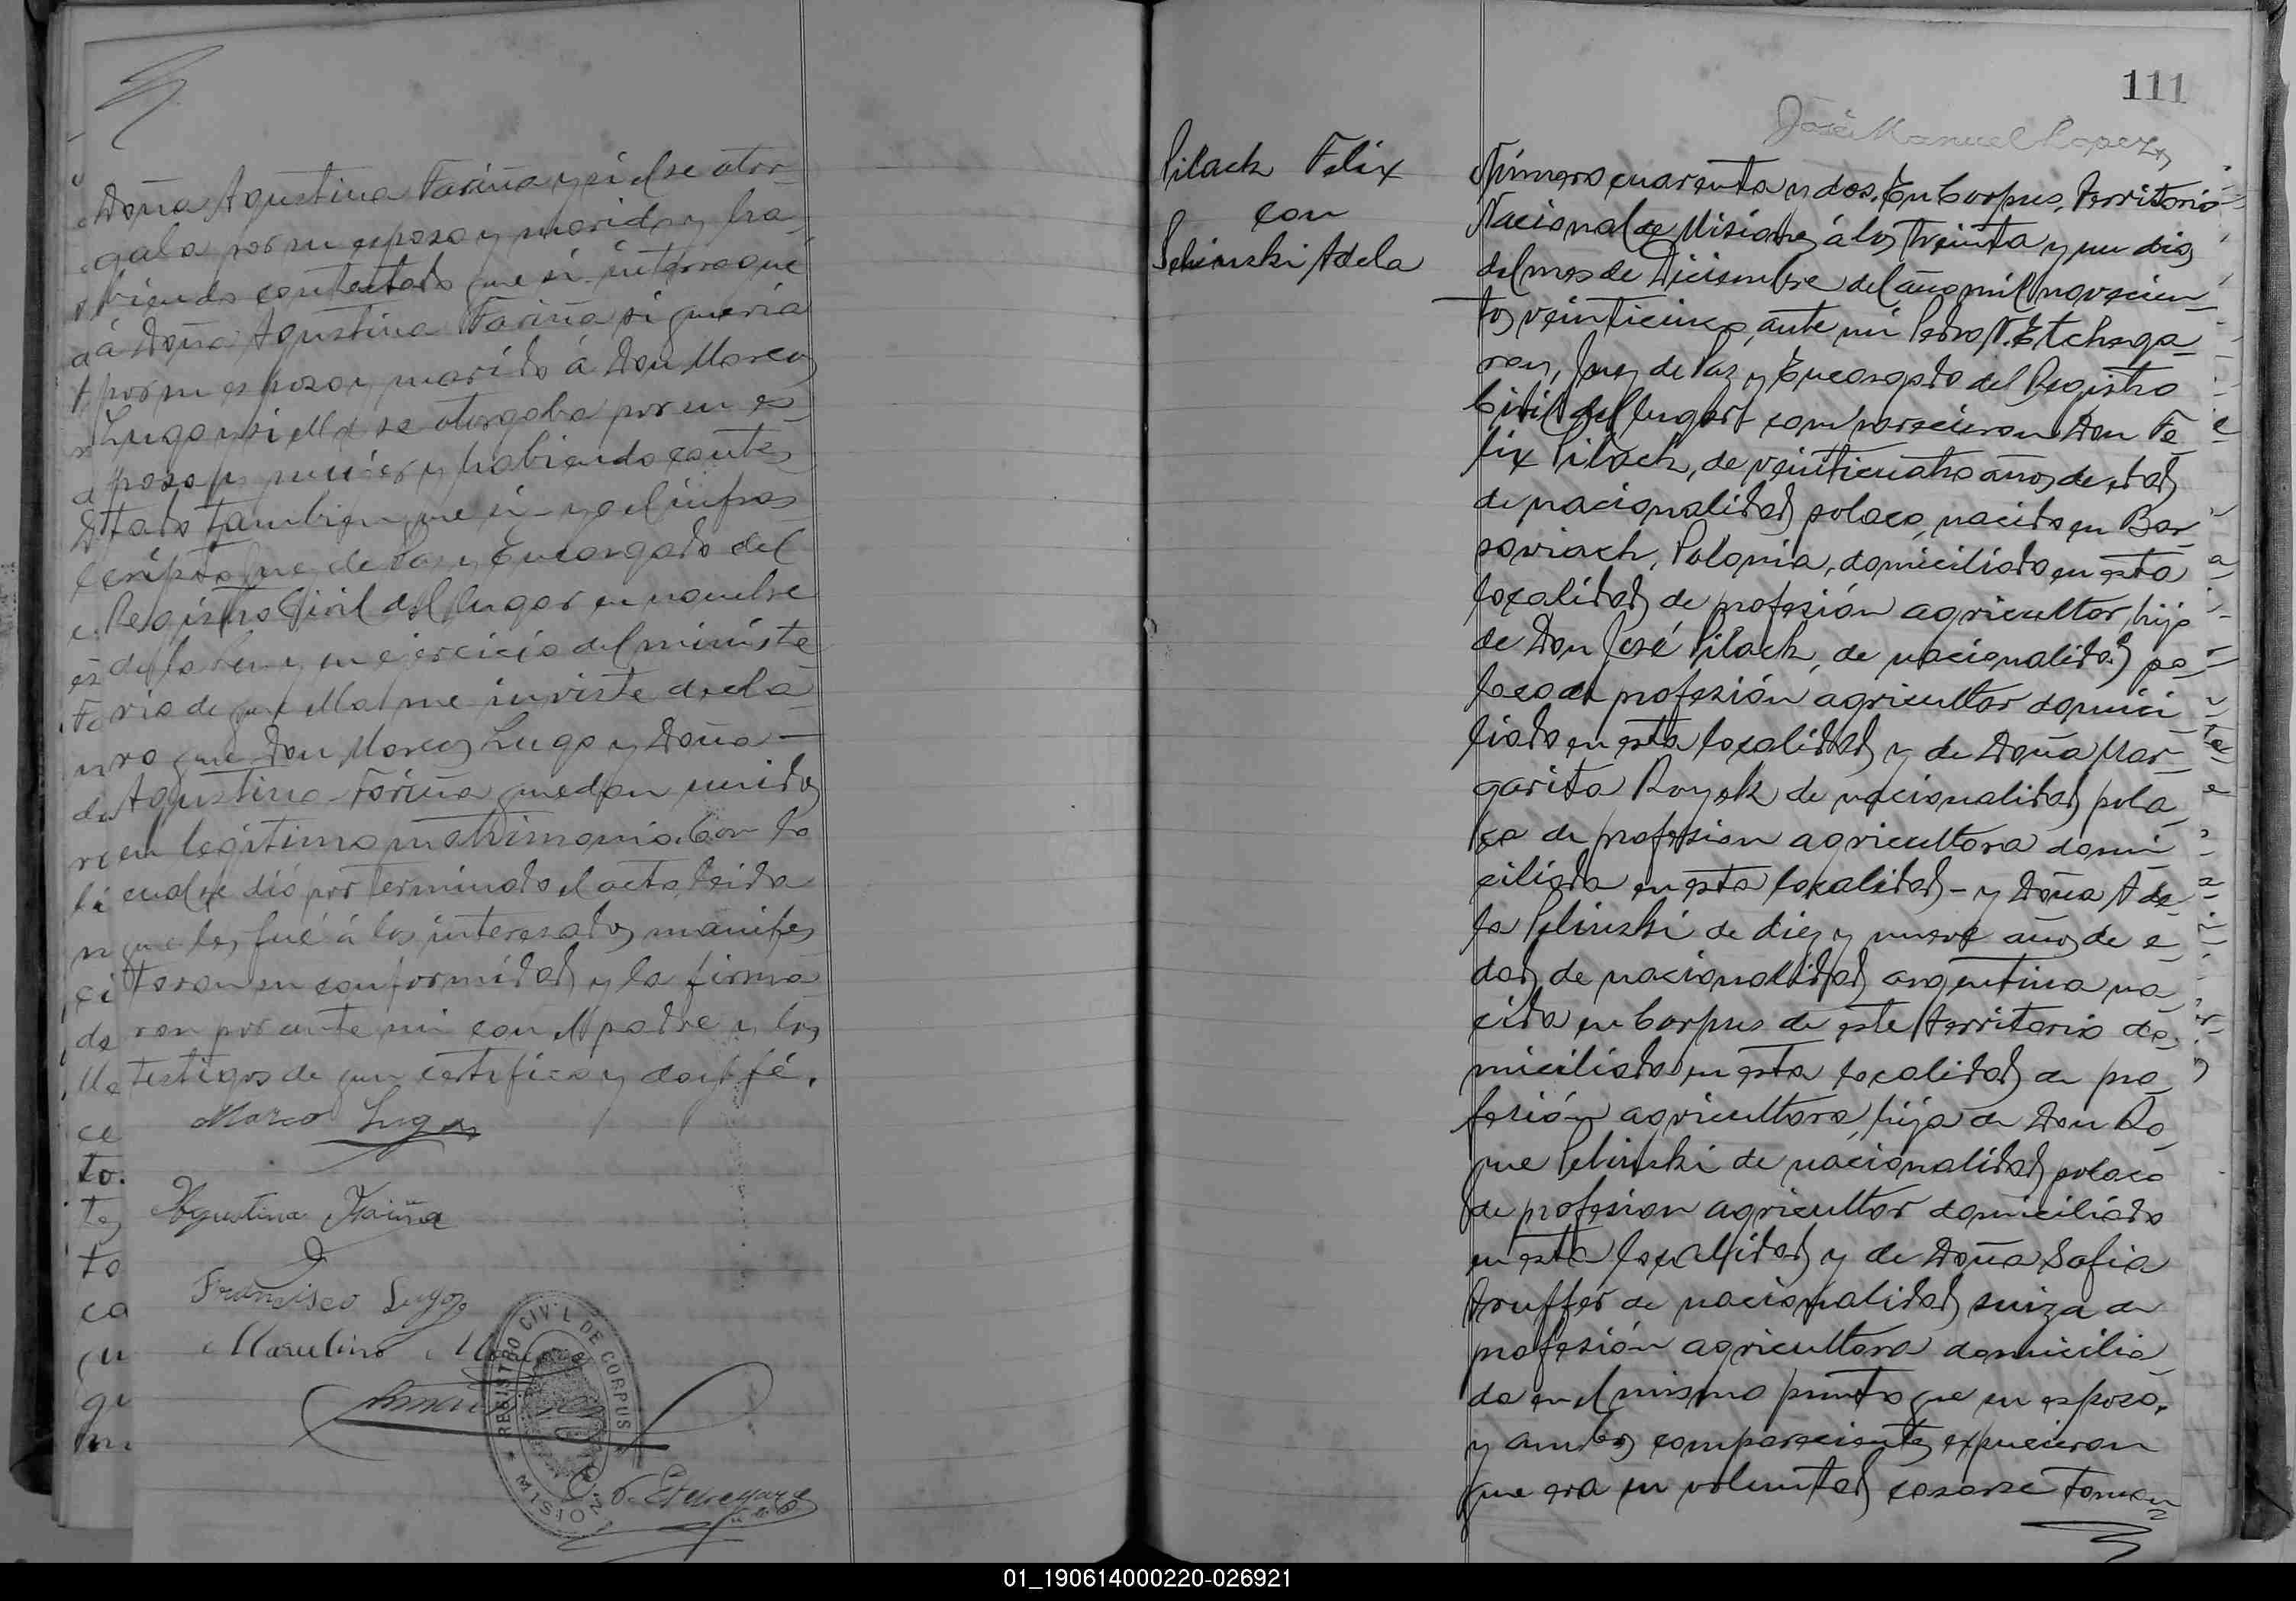 Doña Agustina Fariña y si él se otor-
gaba por su esposo y marido y ha-
biendo contestado que si interrogué
á Doña Agustina Fariña si queria
por su esposo y marido á Don Marcos
Lugo y si ella se otorgaba por su es-
posa y mujer y habiendo contes-
tado tambien que si - yo el infras-
cripto Juez de Paz y Encargado del
Registro Civil del lugar en nombre
de la Ley y en ejercicio del ministe-
rio de que ella me inviste decla-
ro que Don Marcos Lugo y Doña
Agustina Fariña quedan unidos
en legítimo matrimonio. Con lo
cual se dió por terminado el acto leida
que les fué á los interesados manifes-
taron su conformidad y la firma-
ron por ante mi con el padre y los
testigos de que certifico y doy fé.
Marco Lugo
Agustina Fariña
Francisco Lugo
Marculino
REGISTRO CIVIL DE CORPUS
MISIONES
P. Etchegaray
111
José Manuel Lopez
Pilach Felix
con
Pelinski Adela
Número cuarenta y dos. En Corpus, Territorio
Nacional de Misiones á los treinta y un dias
del mes de Diciembre del año mil novecien-
tos veinticinco, ante mi Pedro N. Etchega-
ray, Juez de Paz y Encargado del Registro
Civil del lugar comparecieron Don Fe-
lix Pilach, de veinticuatro años de edad
de nacionalidad polaco, nacido en Bar-
soviach, Polonia, domiciliado en esta
localidad de profesión agricultor, hijo
de Don José Pilach, de nacionalidad po-
laco de profesión agricultor domici-
liado en esta localidad y de Doña Mar-
garita Royek de nacionalidad pola-
ca de profesion agricultora domi-
ciliada en esta localidad - y Doña Ade-
la Pelinski de diez y nueve años de e-
dad de nacionalidad argentina na-
cida en Corpus de este territorio do-
miciliada en esta localidad de pro-
fesión agricultora, hija de Don Ro-
que Pelinski de nacionalidad polaco
de profesion agricultor domiciliado
en esta localidad y de Doña Sofia
Truffer de nacionalidad suiza de
profesión agricultora domicilia-
da en el mismo punto que su esposo.
y ambos comparecientes expusieron
que era su voluntad casarse toman-
01_190614000220-026921